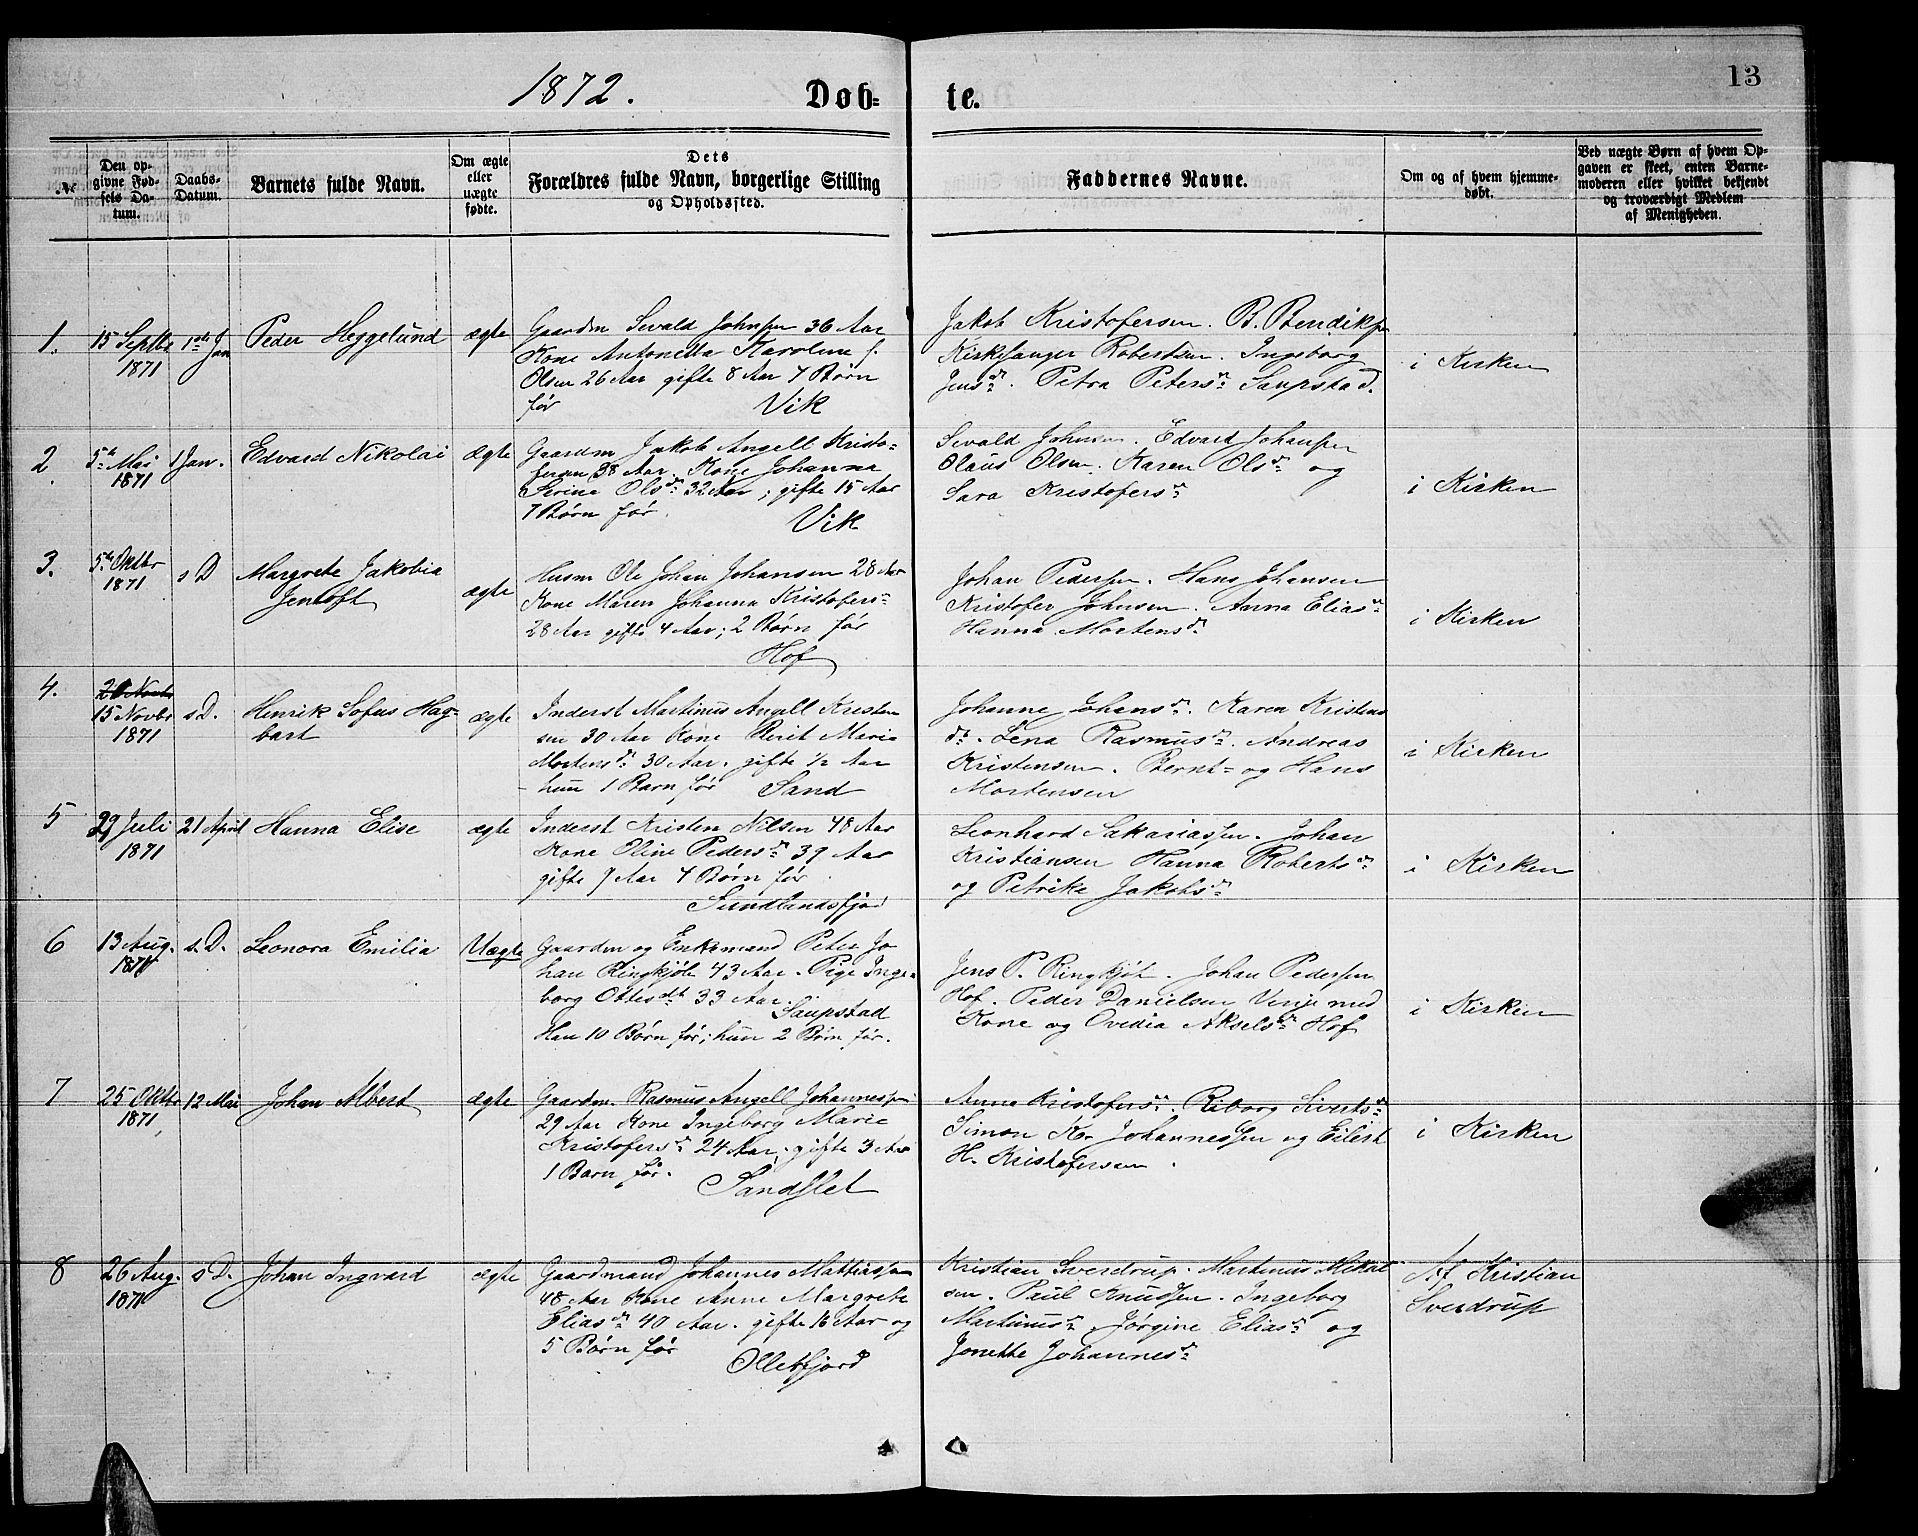 1872. Døb- te. 13
№
Den op-
givne Fød-
sels Da-
tum.
Daabs-
Datum.
Barnets fulde Navn.
Om ægte
eller
uægte
fødte.
Dets
Forældres fulde Navn, borgerlige Stilling
og Opholdssted.
Faddernes Navne.
Om og af hvem hjemme-
døbt.
Ved uægte Børn af hvem Op-
gaven er skeet, enten Barne-
moderen eller hvilket bekjendt
og troværdigt Medlem
af Menigheden.
1.
15 Septbr
1871
1ste Jan
Peder Heggelund
ægte
Gaardm Sevald Johnsen 36 Aar
Kone Antonetta Karoline f.
Olsen 26 Aar gifte 8 Aar 7 Børn
før Vik
Jakob Kristofersen. B. Bendiksen
Kirkesanger Robertsen. Ingeborg
Jensdr. Petra Petersdr Saupstad.
i Kirken
2.
5te Mai
1871
1 Jan.
Edvard Nikolai
ægte
Gaardm Jakob Angell Kristo-
fersen 38 Aar. Kone Johanna
Serine Olsdr 32 Aar; gifte 15 Aar
7 Børn før. Vik
Sevald Johnsen. Edvard Johansen
Olaus Olsen. Karen Olsdr og
Sara Kristofersdr
i Kirken
3.
5te Oktbr
1871
s D
Margrete Jakobia
Jentoft
ægte
Husm Ole Johan Johansen 28 Aar
Kone Maren Johanna Kristofersdr
28 Aar gifte 4 Aar; 2 Børn før
Hof
Johan Pedersen. Hans Johansen
Kristofer Johnsen. Anna Eliasdr
Hanna Mortensdr
i Kirken
4.
20 Novbr
15 Novbr
1871
s.D.
Henrik Sofus Hag-
bart
ægte
Inderst Martinus Angell Kristen
sen 30 Aar Kone Berit Marie
Mortensdr 30 Aar. gifte 1/2 Aar
hun 1 Barn før Sand
Johanne Johansdr. Karen Kristens
dr. Lena Rasmusdr. Andreas
Kristensen. Bernt- og Hans
Mortensen
i Kirken
5
29 Juli
1871
21 April
Hanna Elise
ægte
Inderst Kristen Nilsen 48 Aar
Kone Oline Pedersdr 39 Aar
gifte 7 Aar 4 Børn før.
Sundlandsfjord
Leonhard Sakariassen. Johan
Kristiansen Hanna Robertsdr
og Petrike Jakobsdr
i Kirken
6
13 Aug.
1871
s.D.
Leonora Emilia
Uægte
Gaardm og Enkemand Peter Jo
han Ringkjøb 43 Aar. Pige Inge-
borg Ottesdtr 33 Aar.
Saupstad
Han 10 Børn før; hun 2 Børn før.
Jens P. Ringkjøb. Johan Pedersen
Hof. Peder Danielsen Verije med
Kone og Ovedia Akselsdr Hof
i Kirken
7
25 Oktbr
1871
12 Mai
Johan Albert
ægte
Gaardm. Rasmus Angell Johannessen
29 Aar Kone Ingeborg Marie
Kristofersdr 24 Aar, gifte 3 Aar
1 Barn før. Sandslet
Anna Kristofersdr. Riborg Sivertsdr
Simon K. Johannessen og Eilert
H. Kristofersen.
i Kirken
8
26 Aug.
1871
s D.
Johan Ingvard
ægte
Gaardmand Johannes Mattiassen
48 Aar Kone Anne Margrete
Eliasdr 40 Aar. gifte 16 Aar og
5 Børn før Olletfjord
Kristian Sverdrup. Martinus Mikal
sen. Paul Knudsen. Ingeborg
Martinusdr Jørgine Eliasdr og
Jonette Johannesdr
Af Kristian
Sverdrup